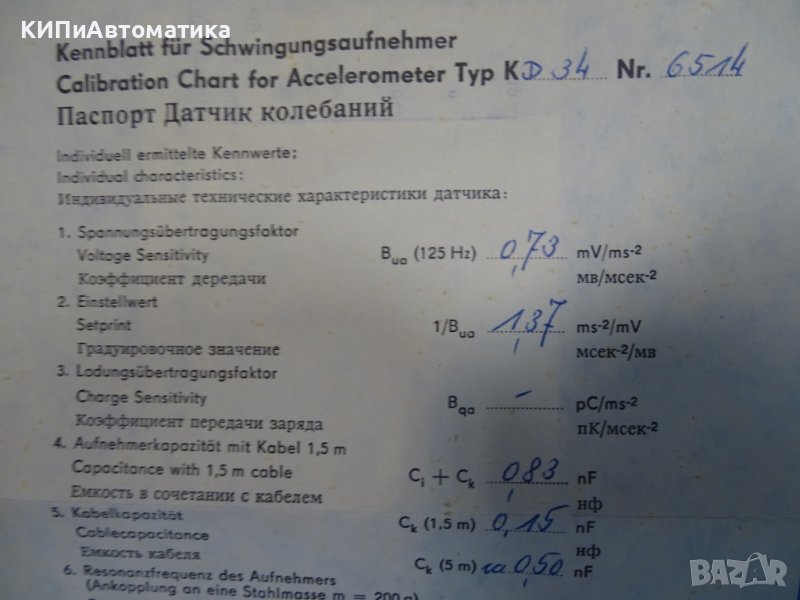 КИПиАвтоматика
Kennblatt für Schwingungsaufnehmer
Calibration Chart for Accelerometer Typ KD 34 Nr. 6514
Паспорт Датчик колебаний
Individuell ermittelte Kennwerte:
Individual characteristics:
Индивидуальные технические характеристики датчика:
1. Spannungsübertragungsfaktor
Voltage Sensitivity Bua (125 Hz) 0,73 mV/ms-2
Коэффициент дередачи мв/мсек-2
2. Einstellwert
Setprint 1/Bua 1,37 ms-2/mV
Градуировочное значение мсек-2/мв
3. Ladungsübertragungsfaktor
Charge Sensitivity Bqa - pC/ms-2
Коэффициент передачи заряда пК/мсек-2
4. Aufnehmerkapazität mit Kabel 1,5 m
Capacitance with 1,5 m cable Ci + Ck 0,83 nF
Емкость в сочетании с кабелем нф
5. Kabelkapazität Ck (1,5 m) 0,15 nF
Cablecapacitance нф
Емкость кабеля Ck (5 m) ca 0,50 nF
6. Resonanzfrequenz des Aufnehmers
(Ankopplung an eine Stahlmasse m = 200 g)
BAZAR